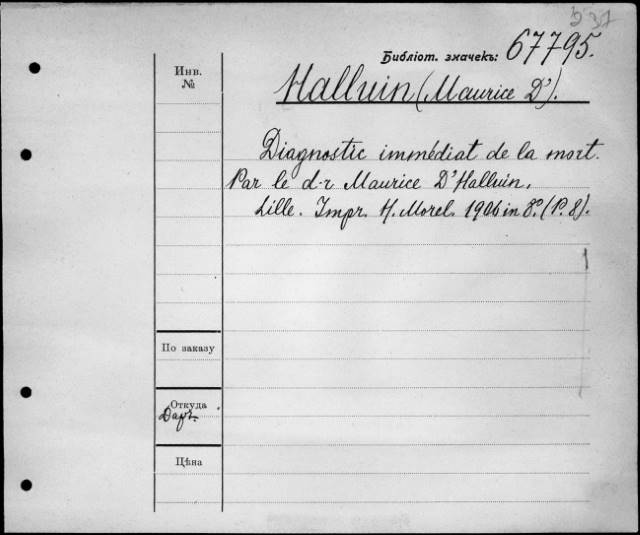 537
Библіот. значекъ: 67795.
Инв.
№
Halluin (Maurice D').
Diagnostic immédiat de la mort.
Par le d-r Maurice D'Halluin.
Lille. Impr. H. Morel. 1906 in 8º. (P. 8).
По заказу
Откуда
Даръ.
Цѣна